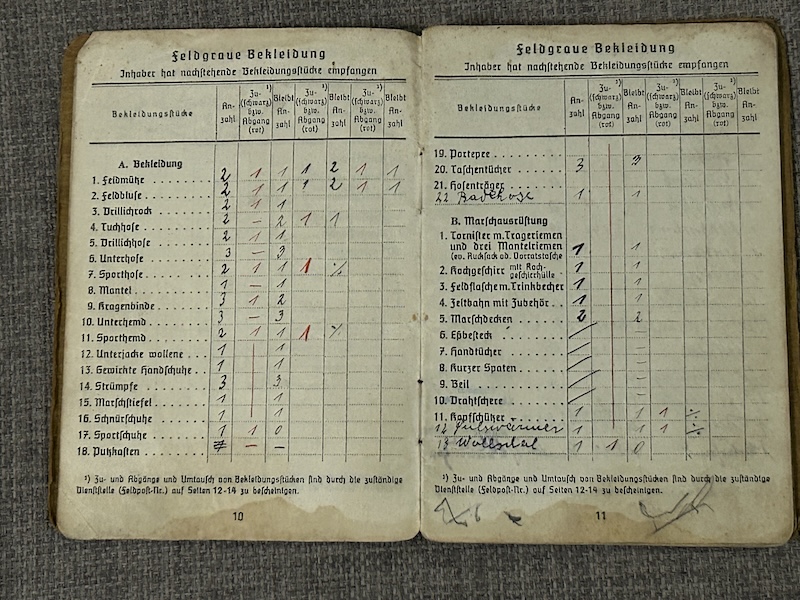 Feldgraue Bekleidung
Inhaber hat nachstehende Bekleidungsstücke empfangen
Bekleidungsstücke An-zahl Zu-(schwarz) bzw. Abgang (rot) ¹) Bleibt An-zahl Zu-(schwarz) bzw. Abgang (rot) ¹) Bleibt An-zahl Zu-(schwarz) bzw. Abgang (rot) ¹) Bleibt An-zahl
A. Bekleidung
1. Feldmütze 2 1 1 1 2 1 1
2. Feldbluse 2 1 1 1 2 1 1
3. Drillichrock 2 1 1
4. Tuchhose 2 – 2 1 1
5. Drillichhose 2 1 1
6. Unterhose 3 – 3
7. Sporthose 2 1 1 1 ·/.
8. Mantel 1 – 1
9. Kragenbinde 3 1 2
10. Unterhemd 3 – 3
11. Sporthemd 2 1 1 1 ·/.
12. Unterjacke wollene 1 1
13. Gewirkte Handschuhe 1 1
14. Strümpfe 3 3
15. Marschstiefel 1 1
16. Schnürschuhe 1 1
17. Sportschuhe 1 1 0
18. Putzkasten – –
¹) Zu- und Abgänge und Umtausch von Bekleidungsstücken sind durch die zuständige
Dienststelle (Feldpost-Nr.) auf Seiten 12-14 zu bescheinigen.
10
Feldgraue Bekleidung
Inhaber hat nachstehende Bekleidungsstücke empfangen
Bekleidungsstücke An-zahl Zu-(schwarz) bzw. Abgang (rot) ¹) Bleibt An-zahl Zu-(schwarz) bzw. Abgang (rot) ¹) Bleibt An-zahl Zu-(schwarz) bzw. Abgang (rot) ¹) Bleibt An-zahl
19. Portepee
20. Taschentücher 3 3
21. Hosenträger
22 Badehose 1 1
B. Marschausrüstung
1. Tornister m. Trageriemen
und drei Mantelriemen
(ev. Rucksack od. Vorratstasche 1 1
2. Kochgeschirr mit Koch-geschirrhülle 1 1
3. Feldflasche m. Trinkbecher 1 1
4. Zeltbahn mit Zubehör 1 1
5. Marschdecken 2 2
6. Eßbesteck
7. Handtücher –
8. Kurzer Spaten –
9. Beil –
10. Drahtschere –
11. Kopfschützer 1 1 1 ÷
12 Pulswärmer 1 1 1 ÷
13 Wollschal 1 1 0
¹) Zu- und Abgänge und Umtausch von Bekleidungsstücken sind durch die zuständige
Dienststelle (Feldpost-Nr.) auf Seiten 12-14 zu bescheinigen.
11